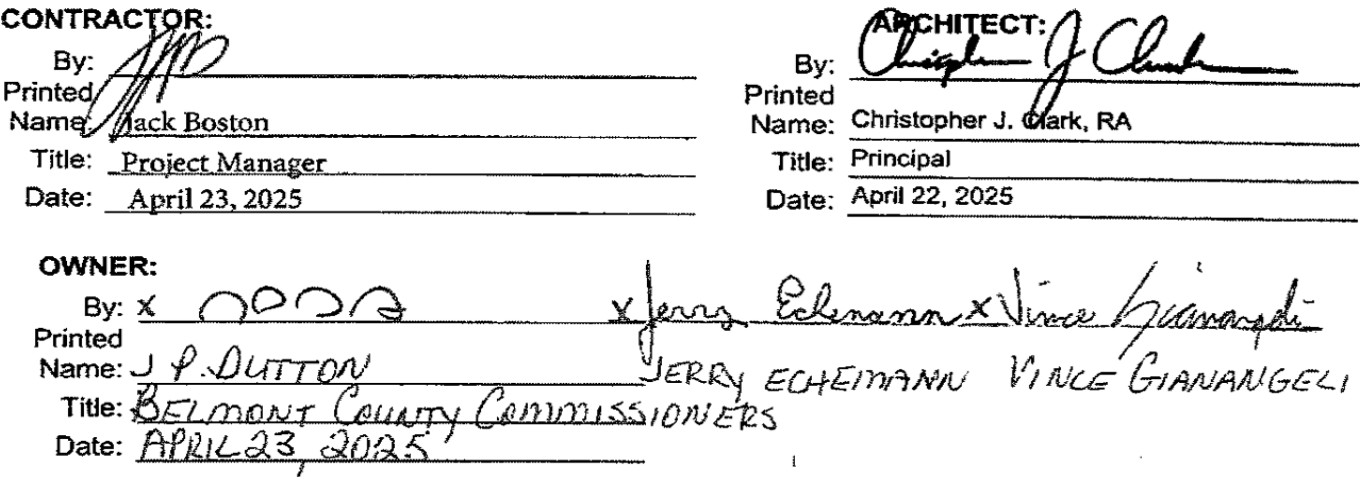 CONTRACTOR:
By:
Printed
Name: Jack Boston
Title: Project Manager
Date: April 23, 2025
ARCHITECT:
By: Christopher J Clark
Printed
Name: Christopher J. Clark, RA
Title: Principal
Date: April 22, 2025
OWNER:
By: x x Jerry Echemann x Vince Gianangeli
Printed
Name: J P. DUTTON JERRY ECHEMANN VINCE GIANANGELI
Title: BELMONT COUNTY COMMISSIONERS
Date: APRIL 23, 2025